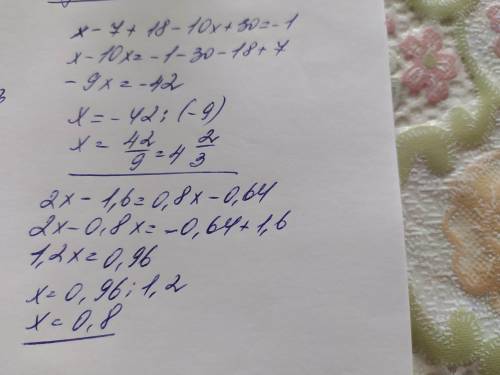 x - 7 + 18 - 10x + 30 = -1
x - 10x = -1 - 30 - 18 + 7
-9x = -42
x = -42 : (-9)
x = 42/9 = 4 2/3
2x - 1,6 = 0,8x - 0,64
2x - 0,8x = -0,64 + 1,6
1,2x = 0,96
x = 0,96 : 1,2
x = 0,8